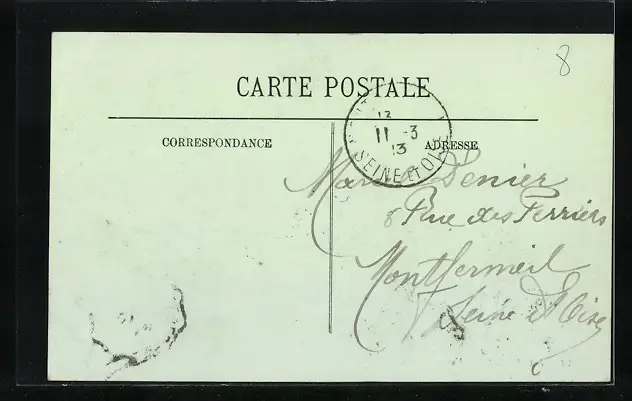 8
CARTE POSTALE
CORRESPONDANCE
ADRESSE
11 -3
13
SEINE ET OISE
Denier
8 Rue des Ferriers
Montfermeil
Seine et Oise